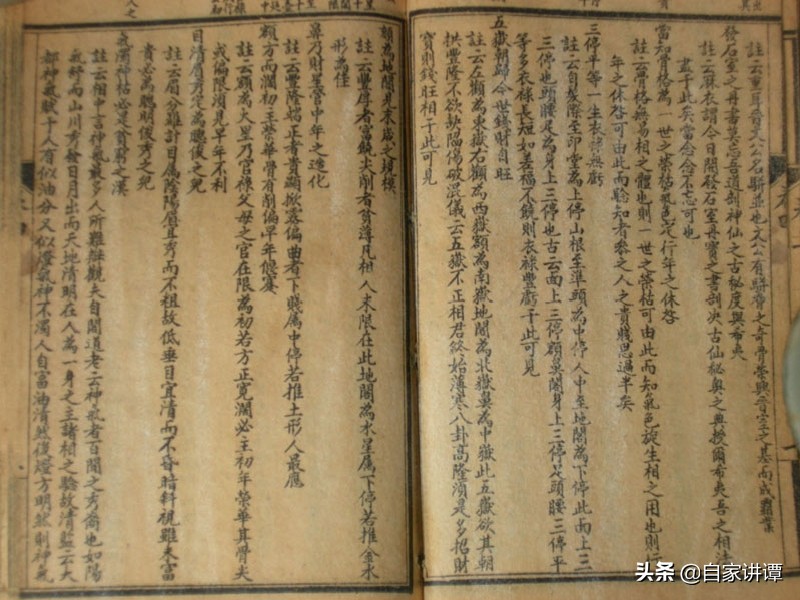 註云重耳晉文公名駢並也文公有駢脅之奇骨榮興晉室之基而成霸業
發石室之丹書莫忘吾道剖神仙之古秘度與希夷
註云麻衣謂今日開發石室丹寶之書剖決古仙秘奧之典授爾希夷吾之相法
盡于此矣當念念不忘可也
當知骨格為一世之榮枯氣色定行年之休咎
註云骨格無易相之體也則一世之榮枯可由此而知氣色旋生相之用也則行
年之休咎可由此而驗知者參之人之貴賤思過半矣
三停平等一生衣祿無虧
註云自髮際至印堂為上停山根至準頭為中停人中至地閣為下停此面上三
三停也頭腰足為身上三停也古云面上三停額鼻閣身上三停足頭腰三停平
等多衣祿長短如差福不饒則衣祿豐虧于此可見
五嶽朝歸今世錢財自旺
註云左顴為東嶽右顴為西嶽額為南嶽地閣為北嶽鼻為中嶽此五嶽欲其朝
拱豐隆不欲缺陷傷破混儀云五嶽不正相君終始薄寒八卦高隆須是多招財
寶則錢旺相于此可見
頦為地閣見末歲之規模
註云豐厚者富饒尖削者貧薄凡相人末限在此地閣為水星屬下停若推金水
形為佳
鼻乃財星管中年之造化
註云豐隆端正者貴顯掀露偏曲者下賤屬中停若推土形人最應
額方而濶初主榮華骨有削偏早年偃蹇
註云額為火星乃官祿父母之宮在限為初若方正寬濶必主初年榮華其骨尖
或偏陷須見早年不利
目清眉秀定為聰俊之兒
註云眉分羅計目屬陰陽眉宜秀而不粗故低垂目宜清而不昏暗斜視雖未富
貴必為聰明俊秀之兒
氣濁神枯必是貧窮之漢
註云相中言神氣最多人所難辨觀夫自閣道老云神氣者百閣之秀裔也如陽
氣舒而山川秀發日月出而天地清明在人為一身之主諸相之驗故清鑑云大
都神氣賦于人有似油分又似燈氣神不濁人自富油清然後燈方明然則神氣
头条 @自家讲谭